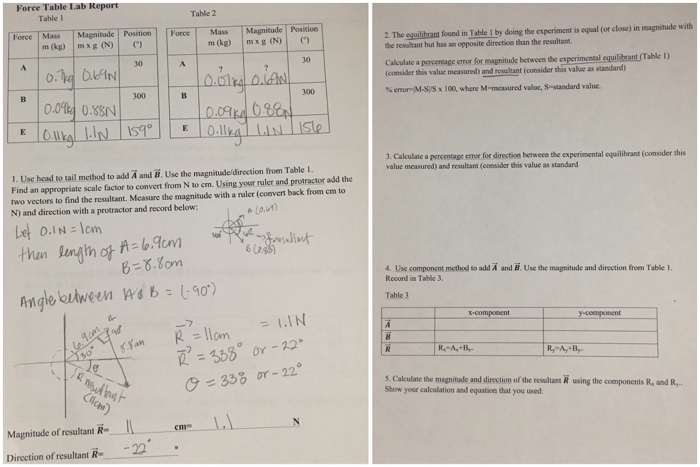 Force Table Lab Report
Table 1
Force Mass m (kg) Magnitude m x g (N) Position (°)
A 0.7kg 0.69N 30
B 0.09kg 0.88N 300
E 0.11kg 1.1N 159°
Table 2
Force Mass m (kg) Magnitude m x g (N) Position (°)
A ? 0.07kg ? 0.69N 30
B 0.09kg 0.88N 300
E 0.11kg 1.1N 156
1. Use head to tail method to add A and B. Use the magnitude/direction from Table 1.
Find an appropriate scale factor to convert from N to cm. Using your ruler and protractor add the
two vectors to find the resultant. Measure the magnitude with a ruler (convert back from cm to
N) and direction with a protractor and record below:
Let 0.1N = 1cm
then length of A = 6.9cm
B = 8.8cm
A (0.69)
300°
resultant
B (0.88)
Angle between A & B = (-90°)
6.9cm
90°
30°
8.8cm
θ
R resultant
(11cm)
R = 11cm = 1.1N
R = 338° or -22°
θ = 338 or -22°
Magnitude of resultant R= 11 cm= 1.1 N
Direction of resultant R= -22° °
2. The equilibrant found in Table 1 by doing the experiment is equal (or close) in magnitude with
the resultant but has an opposite direction than the resultant.
Calculate a percentage error for magnitude between the experimental equilibrant (Table 1)
(consider this value measured) and resultant (consider this value as standard)
% error=|M-S|/S x 100, where M=measured value, S=standard value.
3. Calculate a percentage error for direction between the experimental equilibrant (consider this
value measured) and resultant (consider this value as standard
4. Use component method to add A and B. Use the magnitude and direction from Table 1.
Record in Table 3.
Table 3
x-component y-component
A
B
R Rx=Ax+Bx Ry=Ay+By
5. Calculate the magnitude and direction of the resultant R using the components Rx and Ry.
Show your calculation and equation that you used: